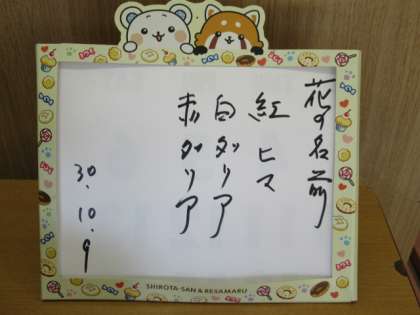 花の名前
紅ヒマ
白ダリア
赤ダリア
30.10.9
SHIROTA-SAN & RESAMARU